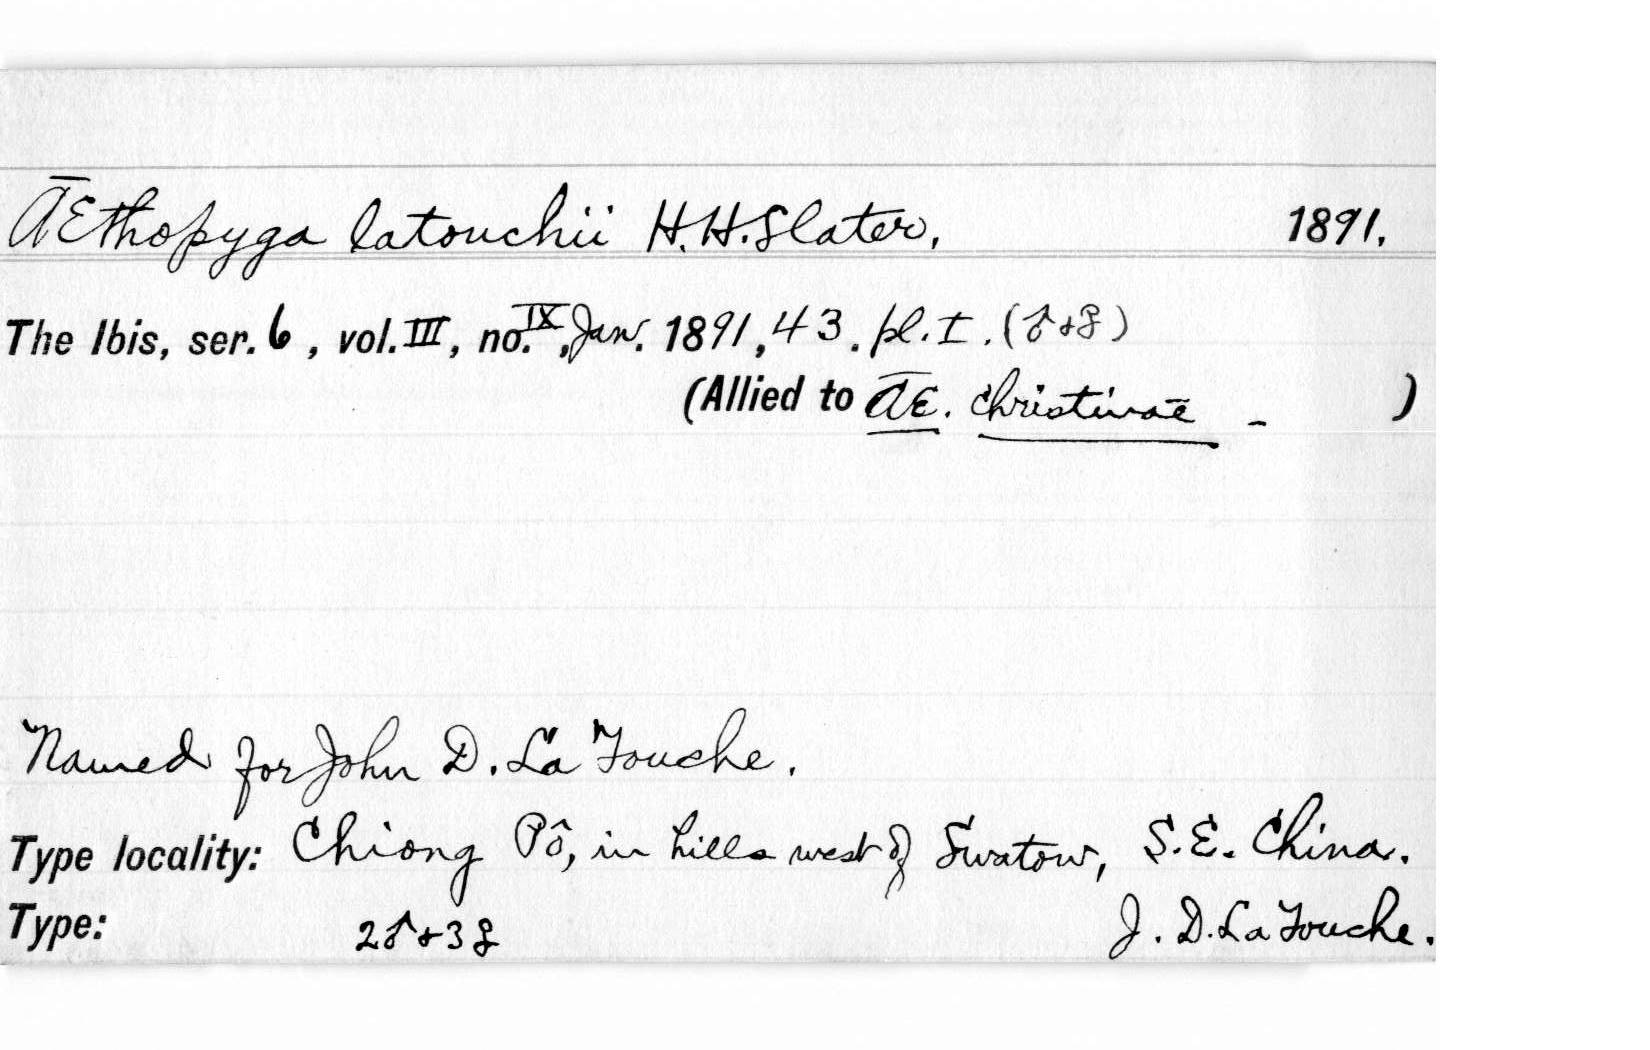 Æthopyga latouchii H.H.Slater, 1891.
The Ibis, ser. 6, vol. III, no. IX, Jan. 1891, 43. pl. I. (♂ & ♀)
(Allied to Æ. christinae - )
Named for John D. La Touche.
Type locality: Chiong Pô, in hills west of Swatow, S.E. China.
Type: 2♂ & 3♀ J. D. La Touche.